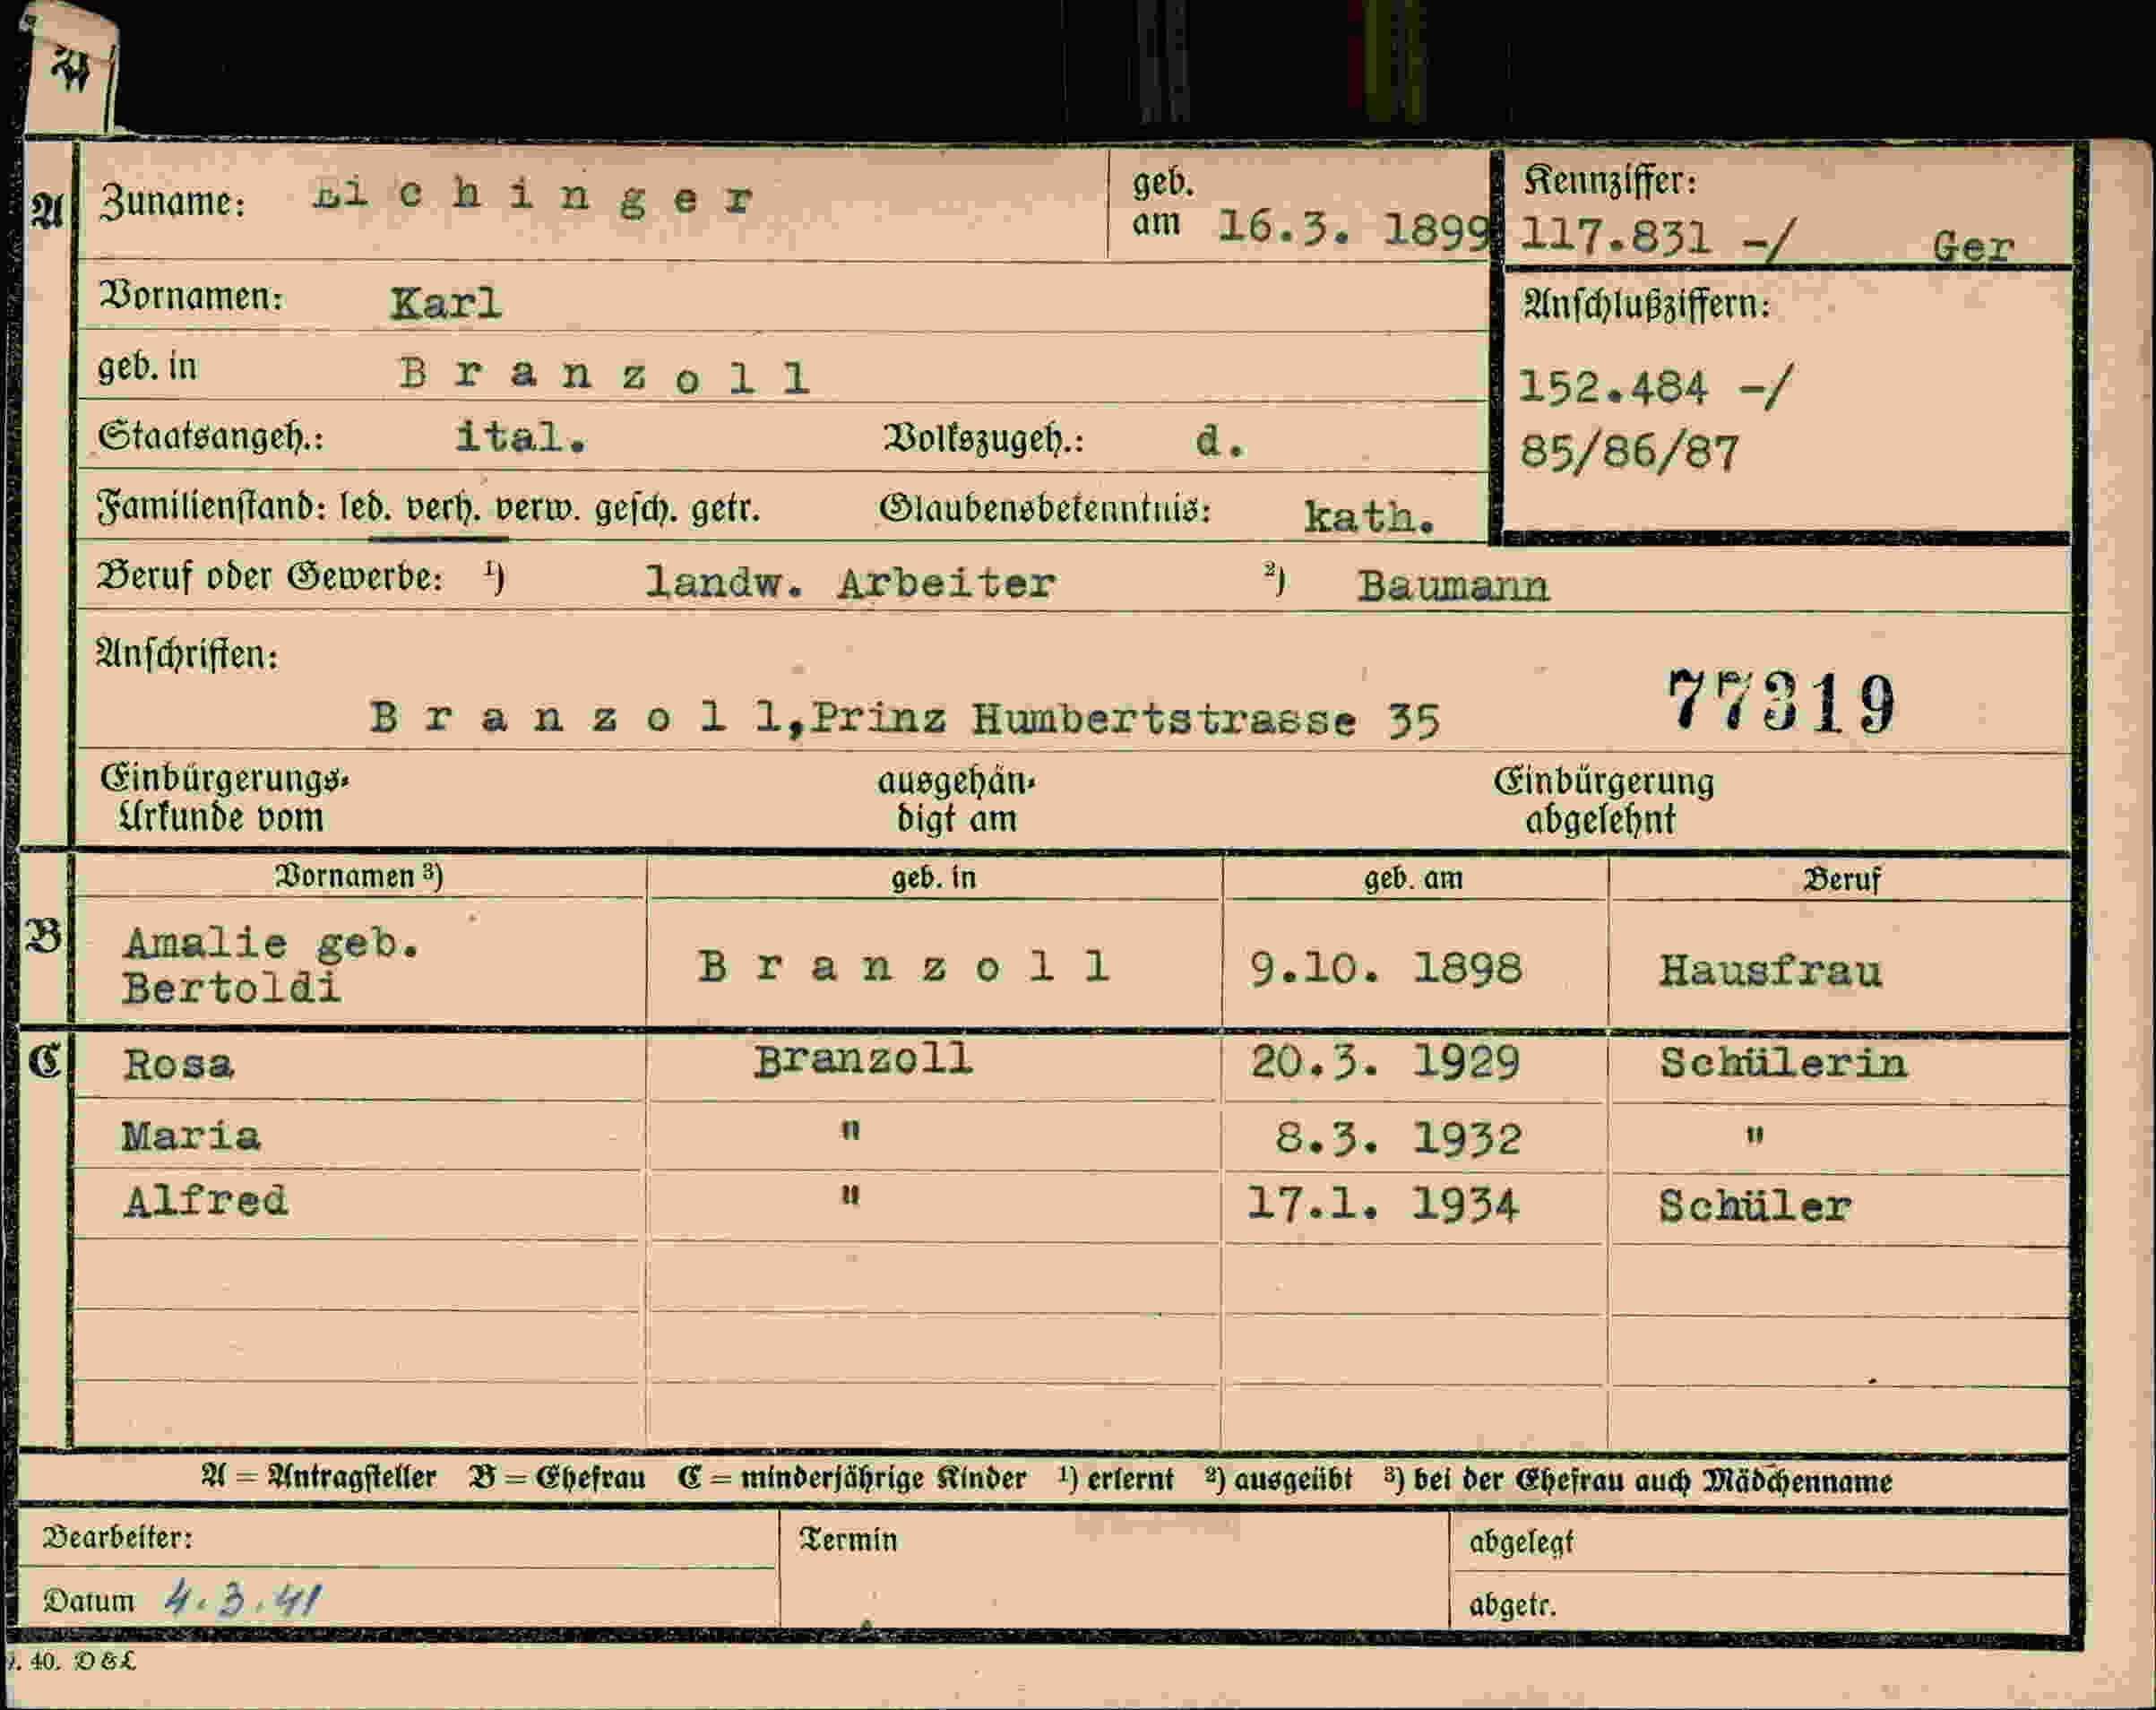 A Zuname: Eichinger geb. am 16.3. 1899 Kennziffer: 117.831 -/ Ger
Vornamen: Karl Anschlußziffern:
geb. in Branzoll 152.484 -/
Staatsangeh.: ital. Volkszugeh.: d. 85/86/87
Familienstand: led. verh. verw. gesch. getr. Glaubensbekenntnis: kath.
Beruf oder Gewerbe: 1) landw. Arbeiter 2) Baumann
Anschriften:
Branzoll,Prinz Humbertstrasse 35 77319
Einbürgerungs- ausgehän- Einbürgerung
Urkunde vom digt am abgelehnt
Vornamen 3) geb. in geb. am Beruf
B Amalie geb.
Bertoldi Branzoll 9.10. 1898 Hausfrau
C Rosa Branzoll 20.3. 1929 Schülerin
Maria " 8.3. 1932 "
Alfred " 17.1. 1934 Schüler
A = Antragsteller B = Ehefrau C = minderjährige Kinder 1) erlernt 2) ausgeübt 3) bei der Ehefrau auch Mädchenname
Bearbeiter: Termin abgelegt
Datum 4.3.41 abgetr.
40. D & L